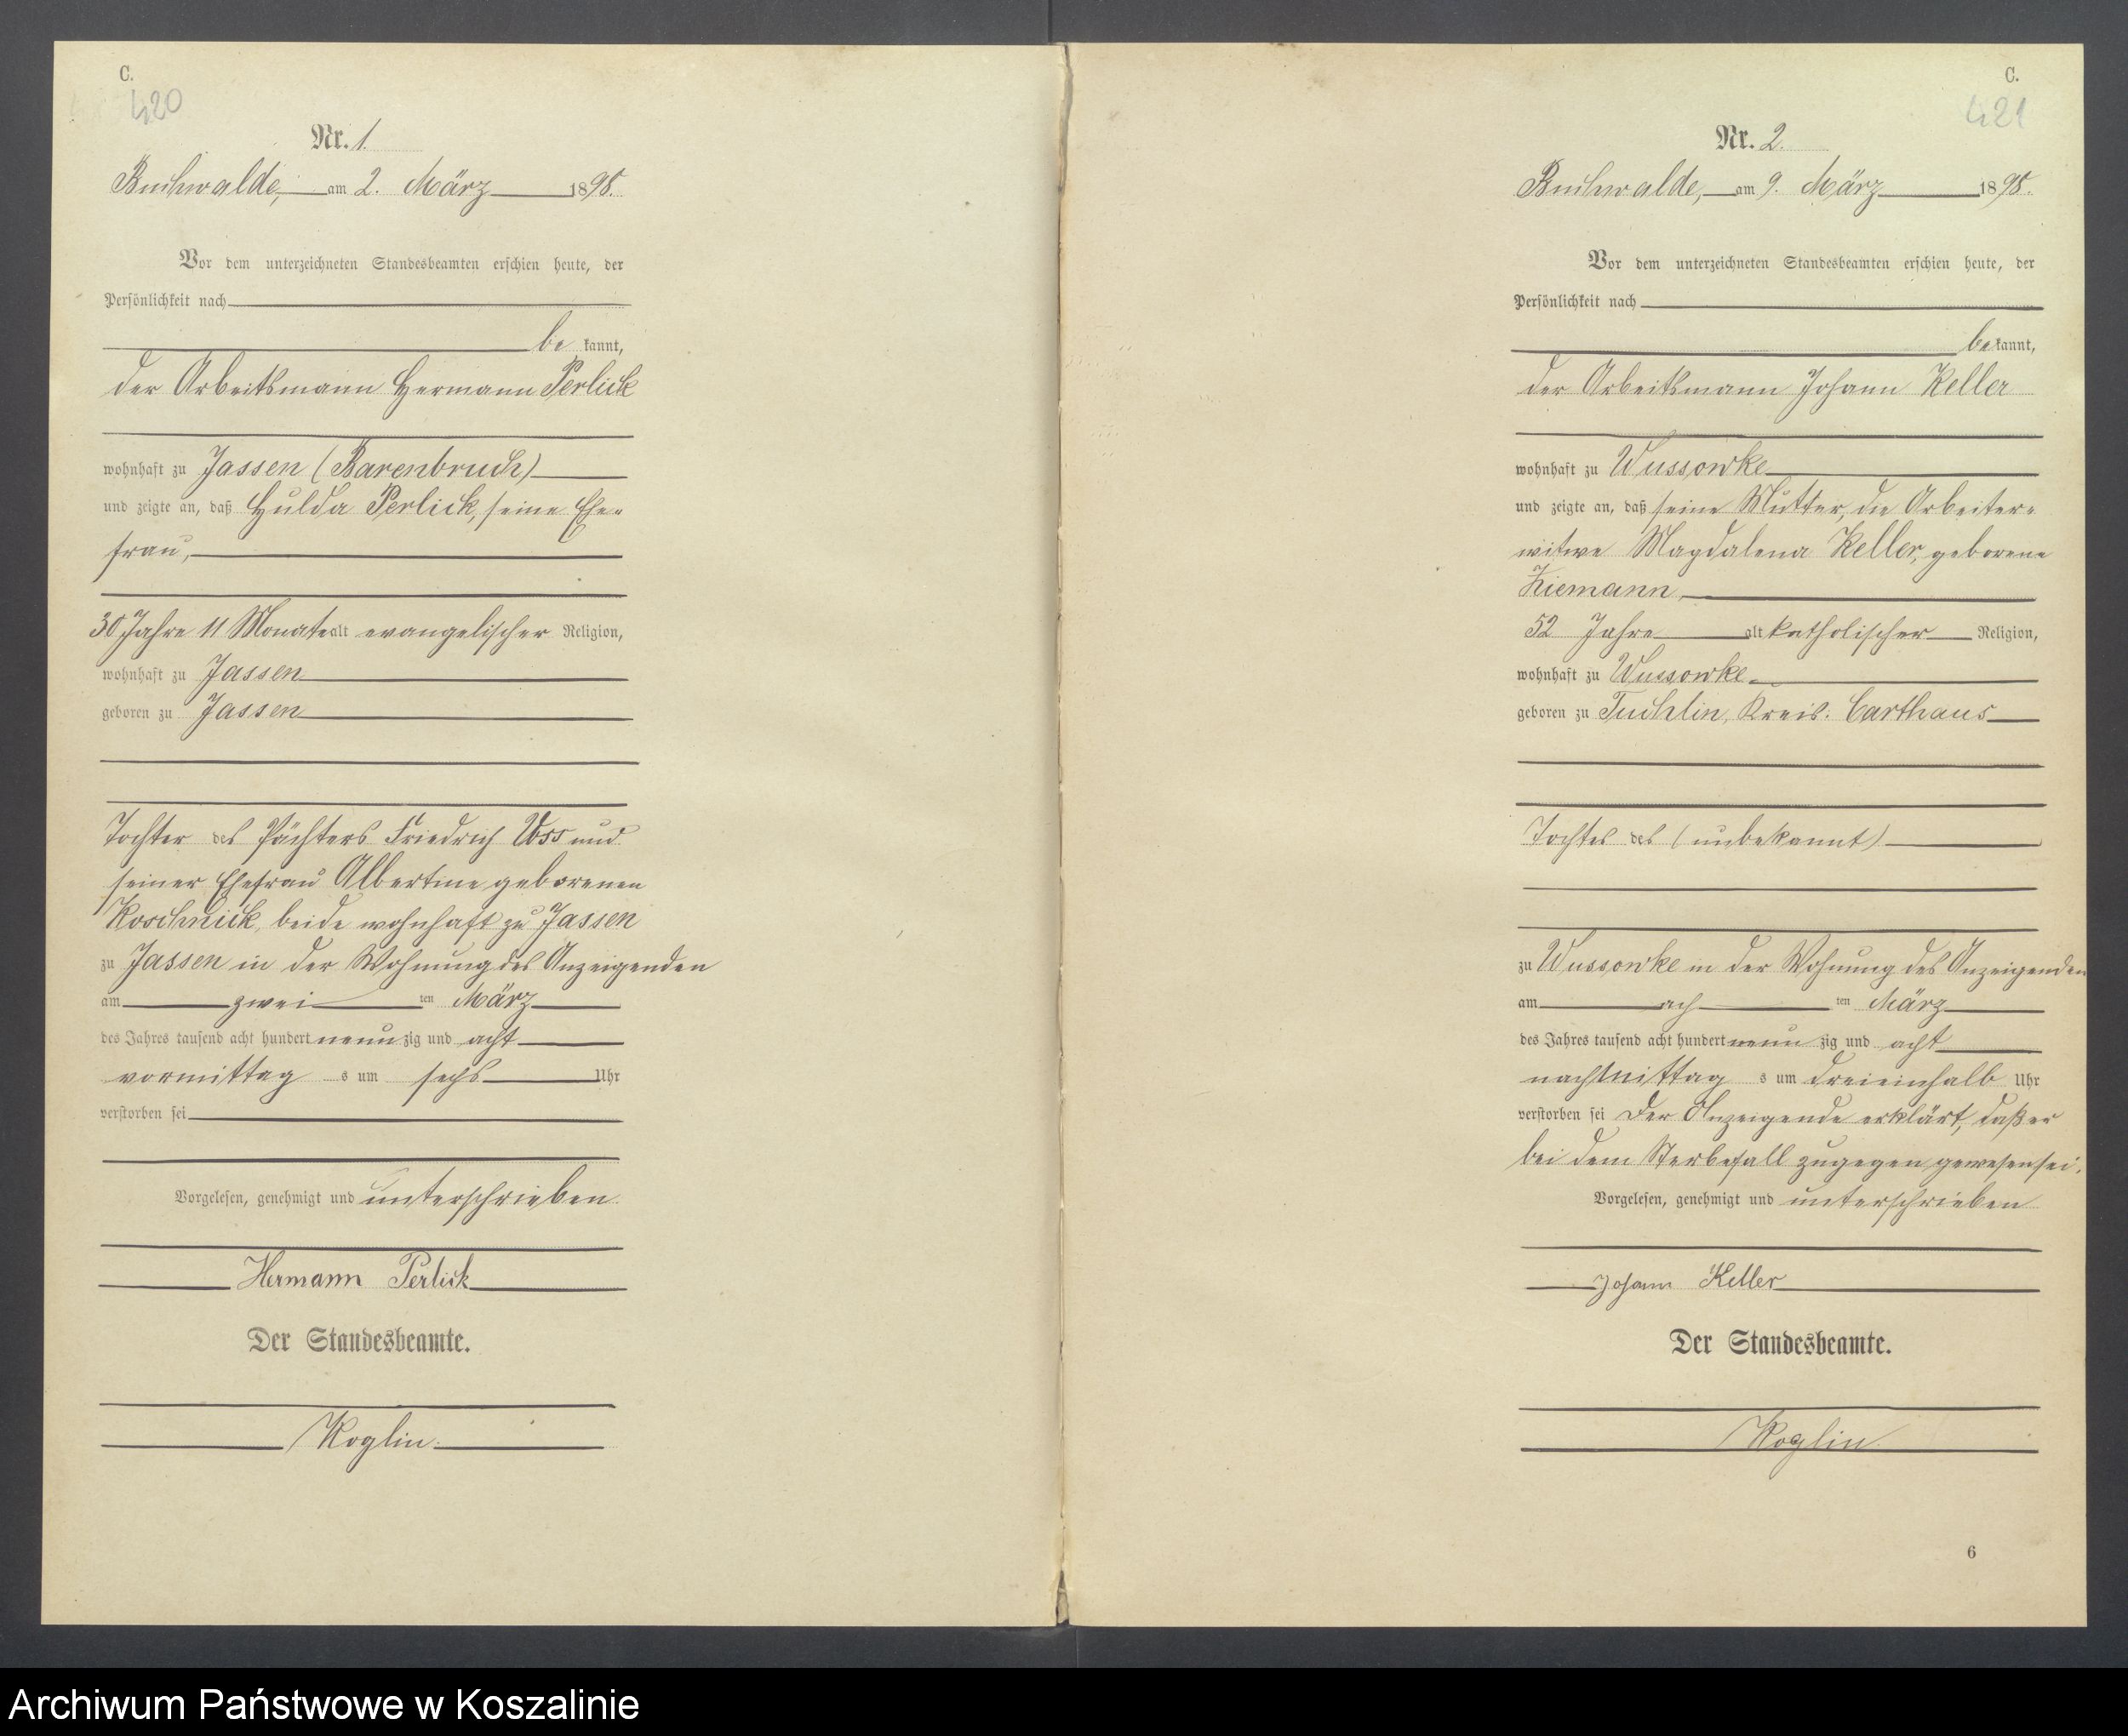 C.
420
Nr. 1.
Buchwalde, am 2. März 1898.
Vor dem unterzeichneten Standesbeamten erschien heute, der
Persönlichkeit nach
be kannt,
der Arbeitsmann Hermann Perlick
wohnhaft zu Jassen (Barenbruch)
und zeigte an, daß Hulda Perlick, seine Ehe-
frau,
30 Jahre 11 Monate alt evangelischer Religion,
wohnhaft zu Jassen
geboren zu Jassen
Tochter des Pächters Friedrich Voss und
seiner Ehefrau Albertine geborenen
Koschnick, beide wohnhaft zu Jassen
zu Jassen in der Wohnung des Anzeigenden
am zwei ten März
des Jahres tausend acht hundert neun zig und acht
vormittag s um sechs Uhr
verstorben sei
Vorgelesen, genehmigt und unterschrieben.
Hermann Perlick
Der Standesbeamte.
Koglin.
C.
421
Nr. 2.
Buchwalde, am 9. März 1898.
Vor dem unterzeichneten Standesbeamten erschien heute, der
Persönlichkeit nach
be kannt,
der Arbeitsmann Johann Keller
wohnhaft zu Wussowke
und zeigte an, daß seine Mutter, die Arbeiter-
witwe Magdalena Keller, geborene
Ziemann,
52 Jahre alt katholischer Religion,
wohnhaft zu Wussowke
geboren zu Tuchlin, Kreis: Carthaus
Tochter des (unbekannt)
zu Wussowke in der Wohnung des Anzeigenden
am ach ten März
des Jahres tausend acht hundert neun zig und acht
nachmittag s um dreieinhalb Uhr
verstorben sei Der Anzeigende erklärt, daß er
bei dem Sterbefall zugegen gewesen sei.
Vorgelesen, genehmigt und unterschrieben
Johann Keller
Der Standesbeamte.
Koglin.
6
Archiwum Państwowe w Koszalinie